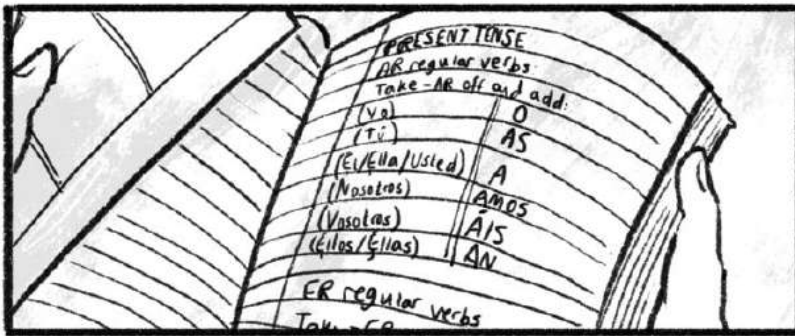 PRESENT TENSE
AR regular verbs:
Take -AR off and add:
(Yo) O
(Tú) AS
(El/Ella/Usted) A
(Nosotros) AMOS
(Vosotros) ÁIS
(Ellos/Ellas) AN
ER regular verbs
Take -ER